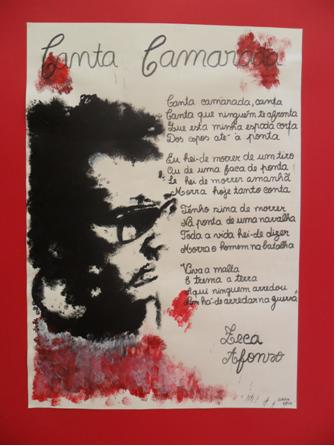 Canta Camarada
Canta camarada, canta
Canta que ninguém te afronta
Que esta minha espada corta
Dos copos até à ponta
Eu hei-de morrer de um tiro
Ou de uma faca de ponta
Se hei de morrer amanhã
Morra hoje tanto conta
Tenho sina de morrer
Na ponta de uma navalha
Toda a vida hei-de dizer
Morra o homem na batalha
Viva a malta
E trema a terra
Aqui ninguém arredou
Quem há-de arredar na guerra
Zeca
Afonso